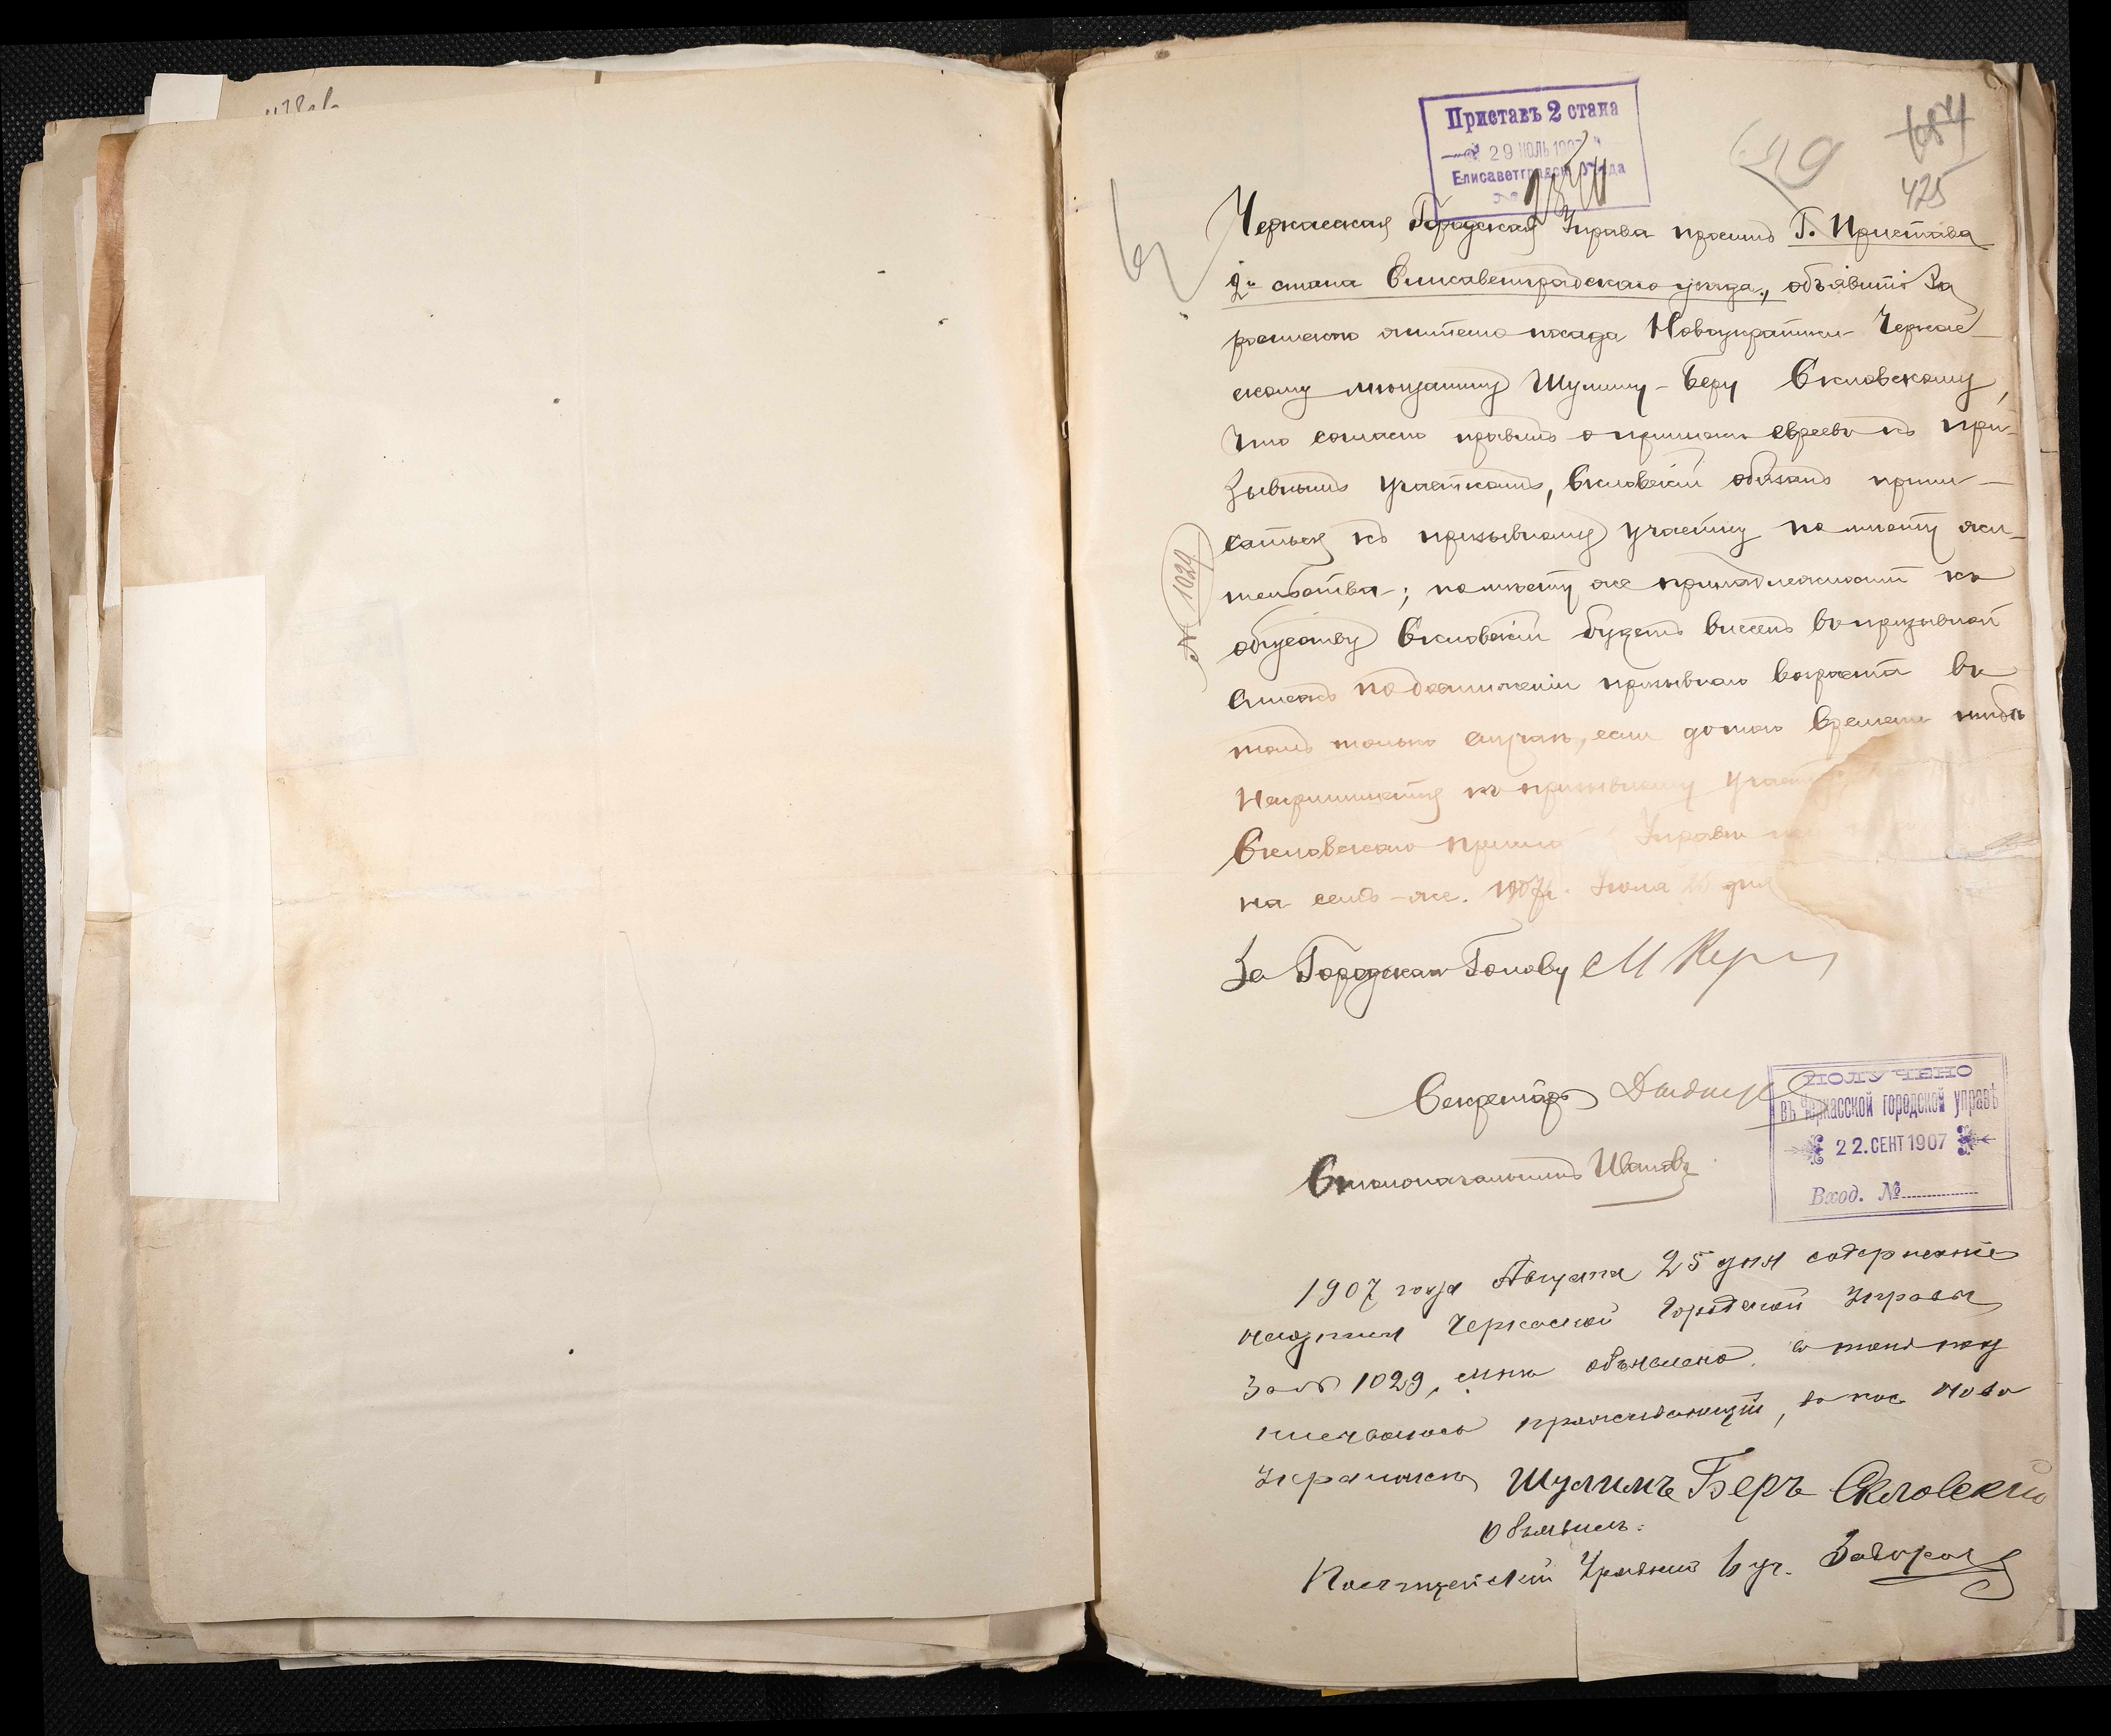 Приставъ 2 стана
29 ІЮЛЬ 1907
Елисаветградск. уѣзда
№
684
425
Черкасская Городская Управа проситъ Г. Пристава
2го стана Елисаветградскаго уѣзда, объявить за
роспискою жителю посада Новоукраинки Черкас-
скому мѣщанину Шулиму-Беру Скловскому,
что согласно правилъ о припискѣ евреевъ къ при-
зывнымъ участкамъ, Скловскій обязанъ припи-
саться къ призывному участку по мѣсту жи-
№ 1029
тельства; по мѣсту же принадлежности къ
обществу Скловскій будетъ внесенъ въ призывной
списокъ по достиженіи призывнаго возраста въ
томъ только случаѣ, если до того времени
неприпишется къ призывному
Скловскаго Управа
на семъ-же. 1907 г. Іюля дня
За Городскаго Голову
Секретарь
Столоначальникъ Ивановъ
ПОЛУЧЕНО
въ Черкасской городской управѣ
22. СЕНТ 1907
Вход. №
1907 года Августа 25 дня содержаніе
Черкасской Городской Управы
за № 1029, мнѣ объявлено, въ томъ под
писываюсь проживающій, въ пос. Ново
украинкѣ Шулимъ Беръ Скловскій
Объявилъ:
Полицейскій Урядникъ 6 уч.